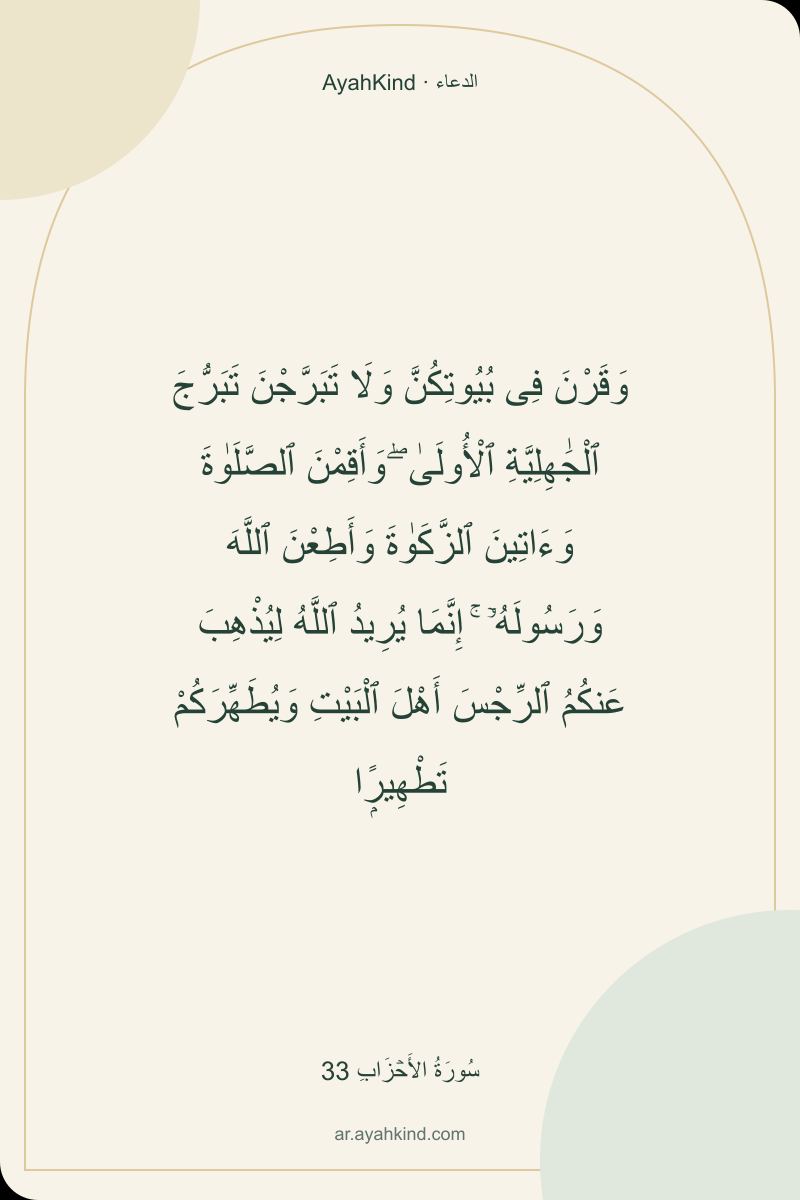 AyahKind · الدعاء
وَقَرْنَ فِى بُيُوتِكُنَّ وَلَا تَبَرَّجْنَ تَبَرُّجَ
ٱلْجَٰهِلِيَّةِ ٱلْأُولَىٰ ۖ وَأَقِمْنَ ٱلصَّلَوٰةَ
وَءَاتِينَ ٱلزَّكَوٰةَ وَأَطِعْنَ ٱللَّهَ
وَرَسُولَهُۥٓ ۚ إِنَّمَا يُرِيدُ ٱللَّهُ لِيُذْهِبَ
عَنكُمُ ٱلرِّجْسَ أَهْلَ ٱلْبَيْتِ وَيُطَهِّرَكُمْ
تَطْهِيرًۭا
سُورَةُ الأَحۡزَابِ 33
ar.ayahkind.com